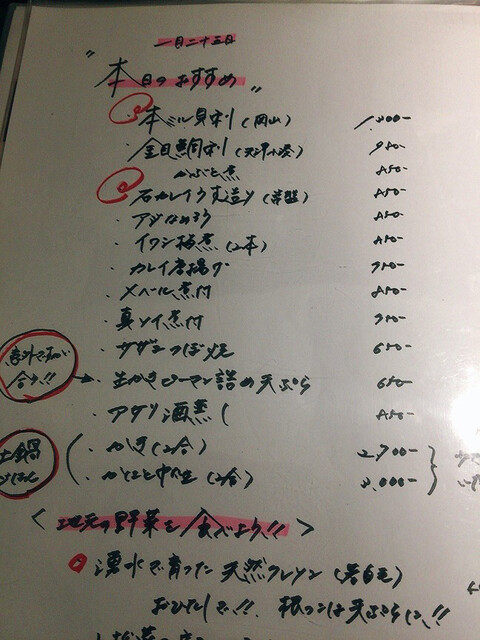 一月二十三日
"本日のおすすめ"
本ミル貝刺(岡山) 1,000-
金目鯛刺(天津小湊) 950-
かぶと煮 850-
石カレイうす造り(常磐) 850-
・アジなめろう 850-
・イワシ梅煮(2本) 850-
・カレイ唐揚げ 950-
・メバール煮付 850-
・真ソイ煮付 950-
・サザエつぼ焼 650-
意外とコレが合う!!
・生かきピーマン詰め天ぷら 650-
・アサリ酒蒸し 850-
土鍋ごはん
・かき(2合) 2,700-
・かにと中生(2合) 3,000-
<地元の野菜を食べよう!!>
湧水で育った天然クレソン(君白毛)
おひたしで!!、根っこは天ぷらに、!!